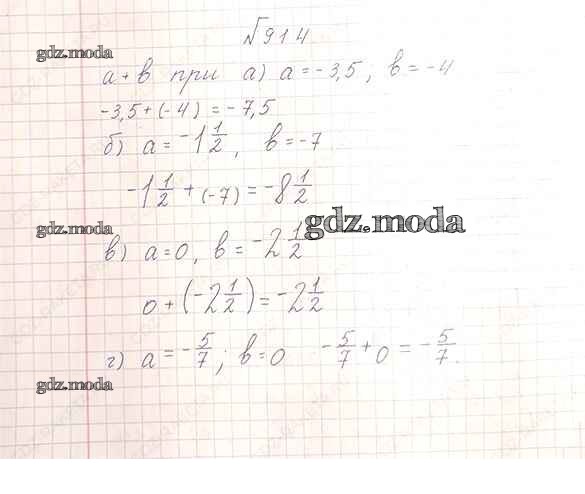 №914
gdz.moda
a + b при а) a = -3,5, b = -4
-3,5 + (-4) = -7,5
б) a = -1 1/2, b = -7
-1 1/2 + (-7) = -8 1/2
gdz.moda
gdz.moda
в) a = 0, b = -2 1/2
0 + (-2 1/2) = -2 1/2
г) a = -5/7; b = 0 -5/7 + 0 = -5/7.
gdz.moda